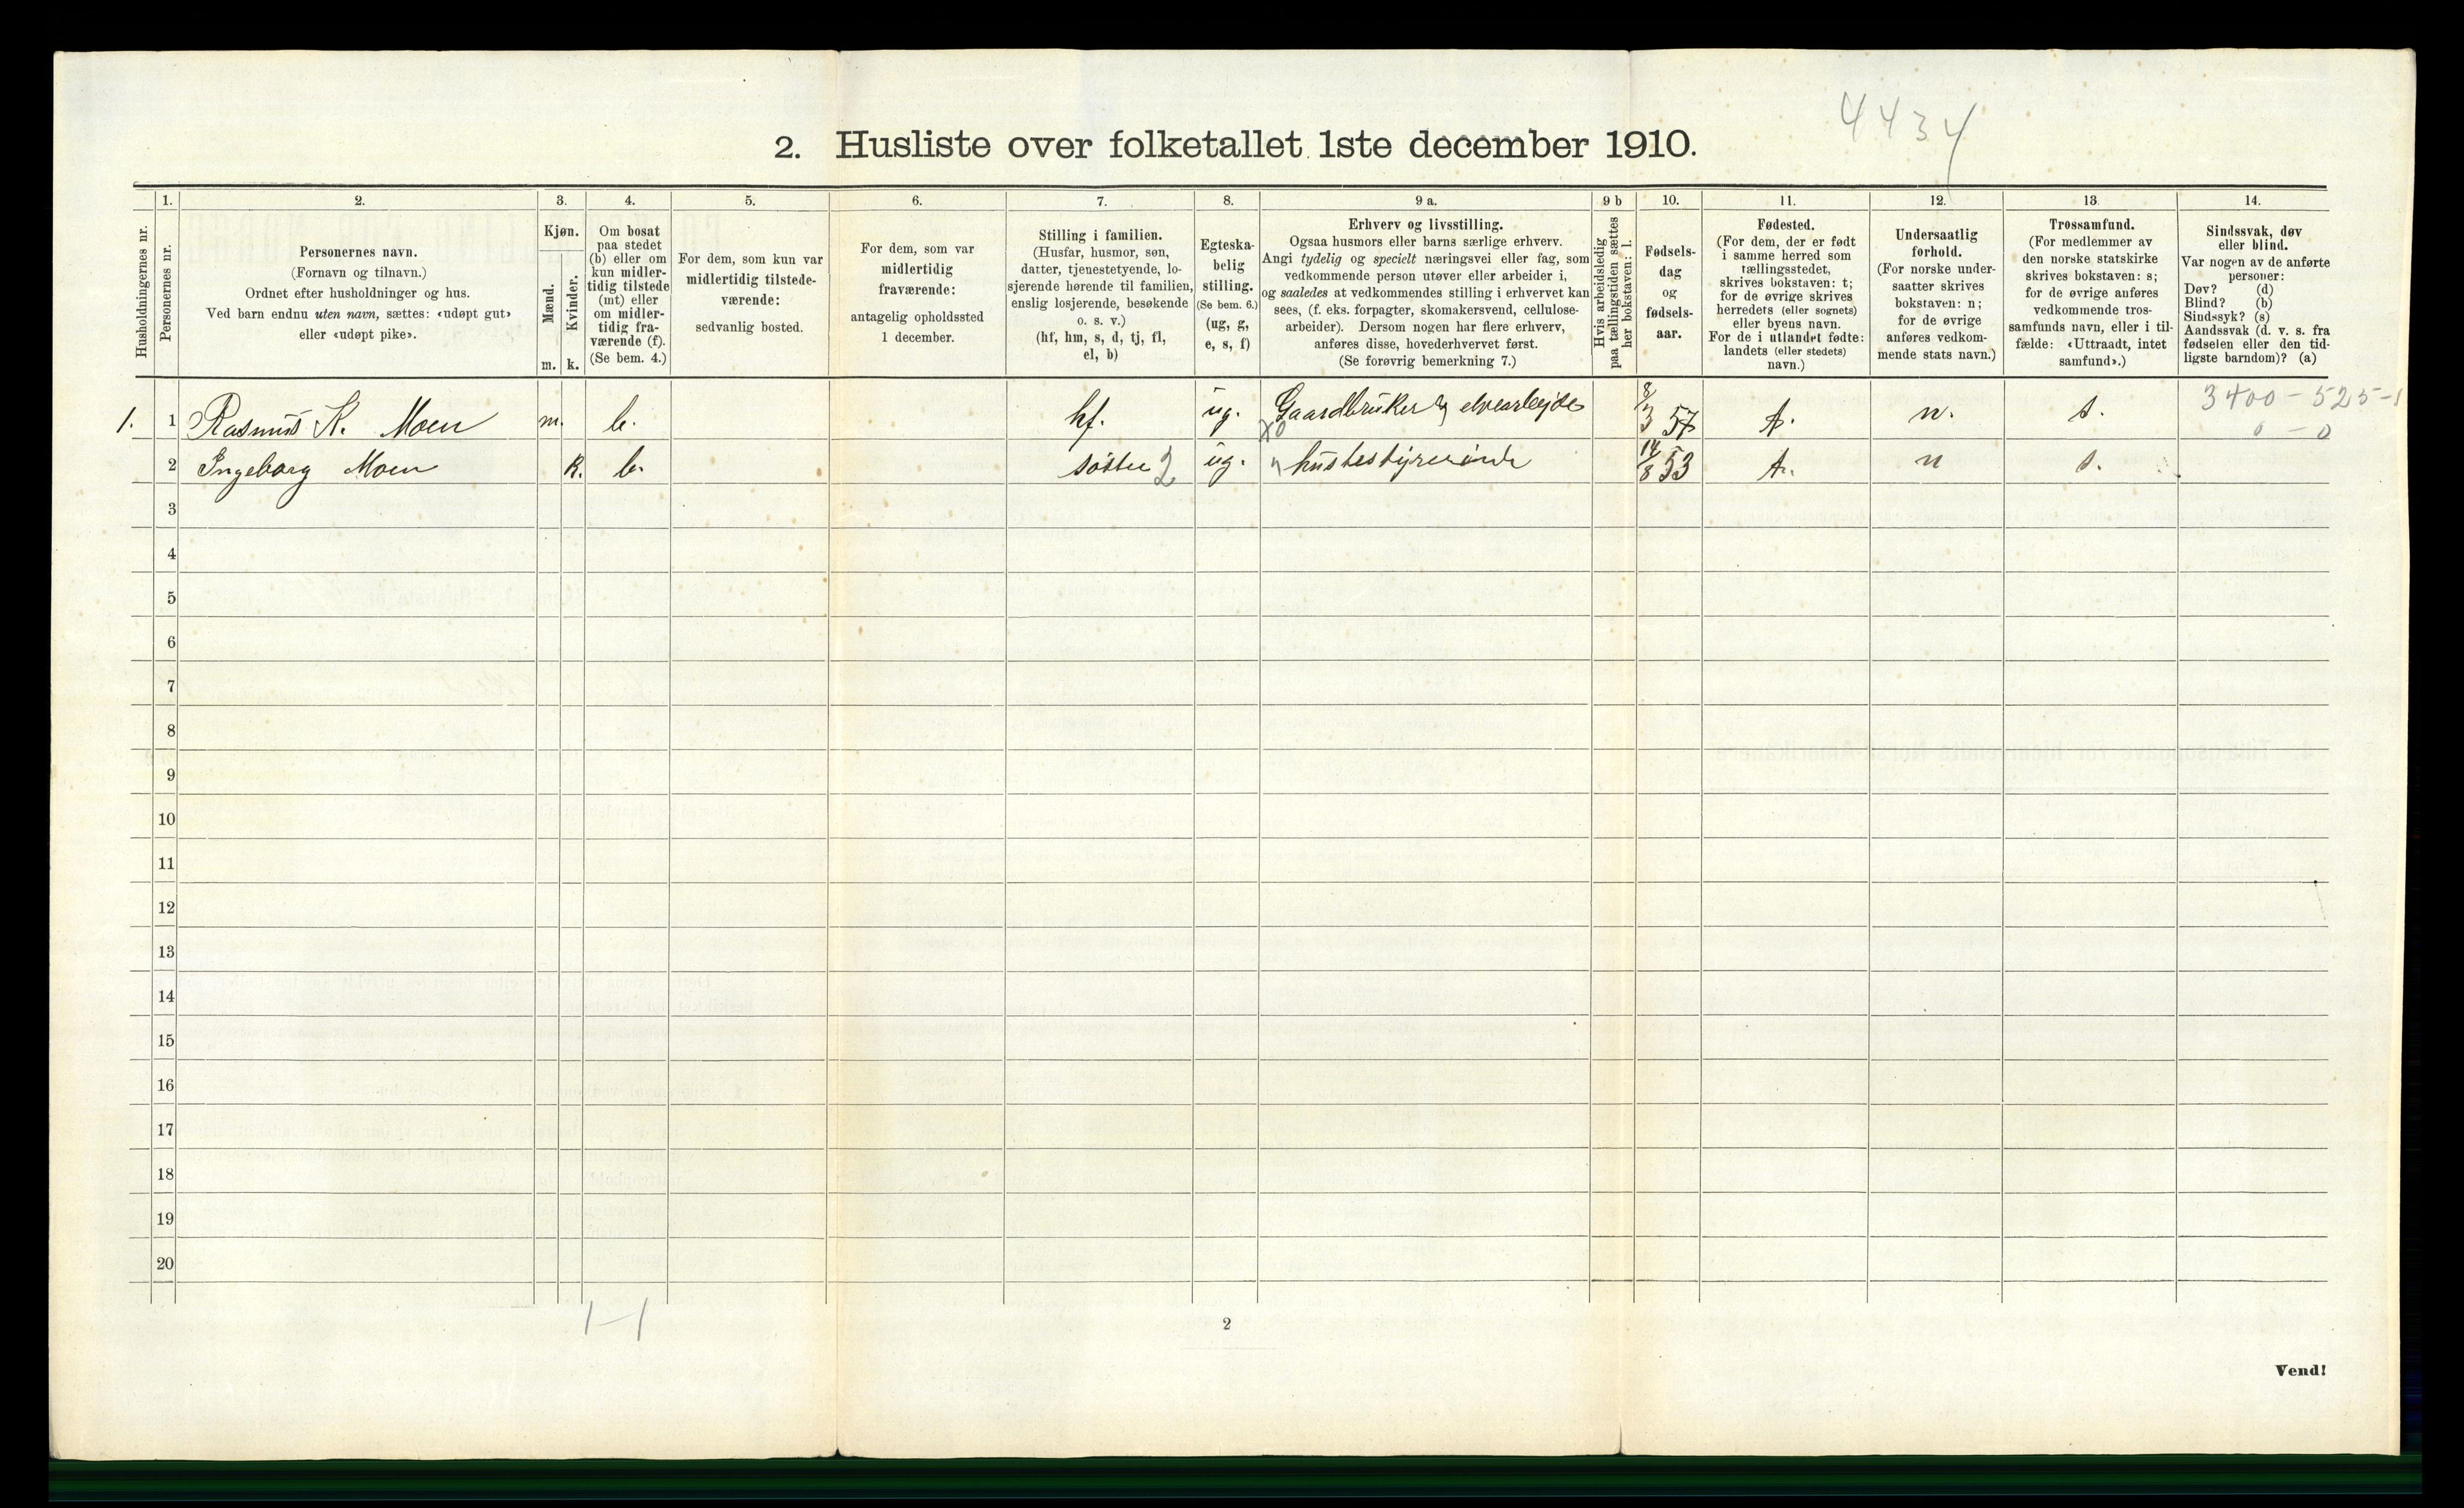 4434
2. Husliste over folketallet 1ste december 1910.
Husholdningernes nr.
1.
Personernes nr.
2.
Personernes navn.
(Fornavn og tilnavn.)
Ordnet efter husholdninger og hus.
Ved barn endnu uten navn, sættes: «udøpt gut»
eller «udøpt pike».
3.
Kjøn.
Mænd.
Kvinder.
m. k.
4.
Om bosat
paa stedet
(b) eller om
kun midler-
tidig tilstede
(mt) eller
om midler-
tidig fra-
værende (f).
(Se bem. 4.)
5.
For dem, som kun var
midlertidig tilstede-
værende:
sedvanlig bosted.
6.
For dem, som var
midlertidig
fraværende:
antagelig opholdssted
1 december.
7.
Stilling i familien.
(Husfar, husmor, søn,
datter, tjenestetyende, lo-
sjerende hørende til familien,
enslig losjerende, besøkende
o. s. v.)
(hf, hm, s, d, tj, fl,
el, b)
8.
Egteska-
belig
stilling.
(Se bem. 6.)
(ug, g,
e, s, f)
9 a.
Erhverv og livsstilling.
Ogsaa husmors eller barns særlige erhverv.
Angi tydelig og specielt næringsvei eller fag, som
vedkommende person utøver eller arbeider i,
og saaledes at vedkommendes stilling i erhvervet kan
sees, (f. eks. forpagter, skomakersvend, cellulose-
arbeider). Dersom nogen har flere erhverv,
anføres disse, hovederhvervet først.
(Se forøvrig bemerkning 7.)
9 b
Hvis arbeidsledig
paa tællingstiden sættes
her bokstaven: l.
10.
Fødsels-
dag
og
fødsels-
aar.
11.
Fødested.
(For dem, der er født
i samme herred som
tællingsstedet,
skrives bokstaven: t;
for de øvrige skrives
herredets (eller sognets)
eller byens navn.
For de i utlandet fødte:
landets (eller stedets)
navn.)
12.
Undersaatlig
forhold.
(For norske under-
saatter skrives
bokstaven: n;
for de øvrige
anføres vedkom-
mende stats navn.)
13.
Trossamfund.
(For medlemmer av
den norske statskirke
skrives bokstaven: s;
for de øvrige anføres
vedkommende tros-
samfunds navn, eller i til-
fælde: «Uttraadt, intet
samfund».)
14.
Sindssvak, døv
eller blind.
Var nogen av de anførte
personer:
Døv? (d)
Blind? (b)
Sindssyk? (s)
Aandssvak (d. v. s. fra
fødselen eller den tid-
ligste barndom)? (a)
1. 1 Rasmus K. Moen m. b. hf. ug. Gaardbruker og elvearbejde 8/3 57 t. n. s. 3400-525-1
X0 0 - 0
2 Ingeborg Moen k. b. søster 2 ug. husbestyrerinde 14/8 53 t. n s.
3
4
5
6
7
8
9
10
11
12
13
14
15
16
17
18
19
20
1-1
2
Vend!